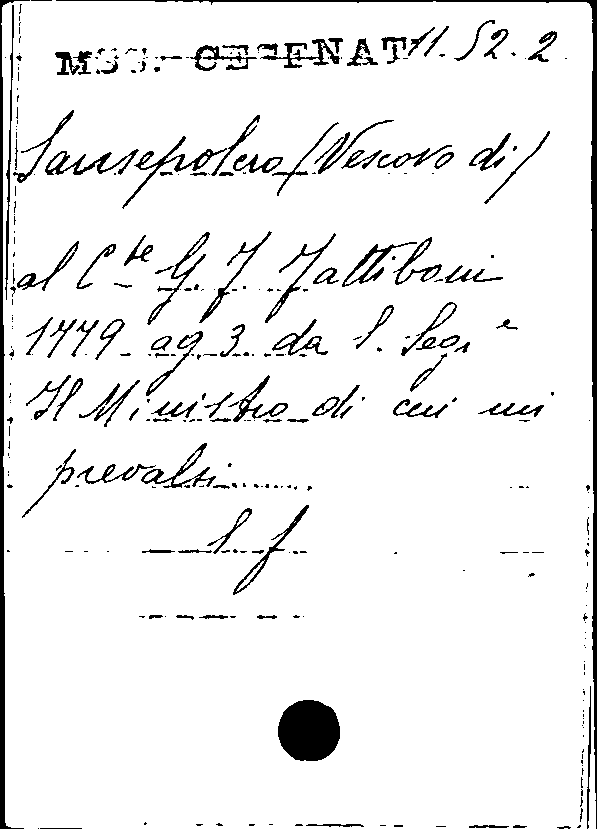 MSS. CESENATI 11.52.2
Sansepolcro (Vescovo di)
al C.te G. F. Fattiboni
1779 ag 3 da S. Segr.
Il Ministro di cui mi
prevalsi
l. f